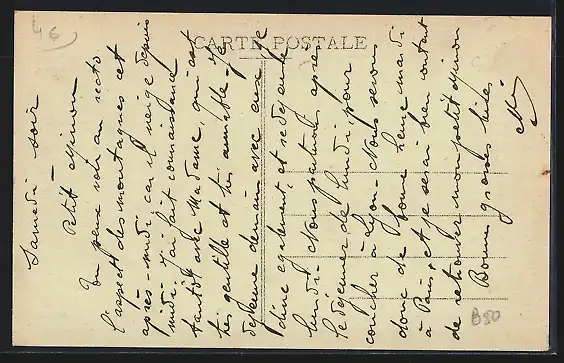 46
CARTE POSTALE
Samedi soir
Petit Minon
Tu peux voir au recto
l'aspect des montagnes cet
après-midi car il neige depuis
midi. J'ai fait connaissance
tantôt avec Madame, qui est
très gentille et très aimable. Je
déjeune demain avec eux, je
dîne également, et je déjeune
lundi. Nous partirons après
le déjeuner de lundi, pour
coucher à Lyon. Nous serons
donc de bonne heure mardi
à Paris, et je serai bien content
de retrouver mon petit Minon
Bonnes grosses bises
B50